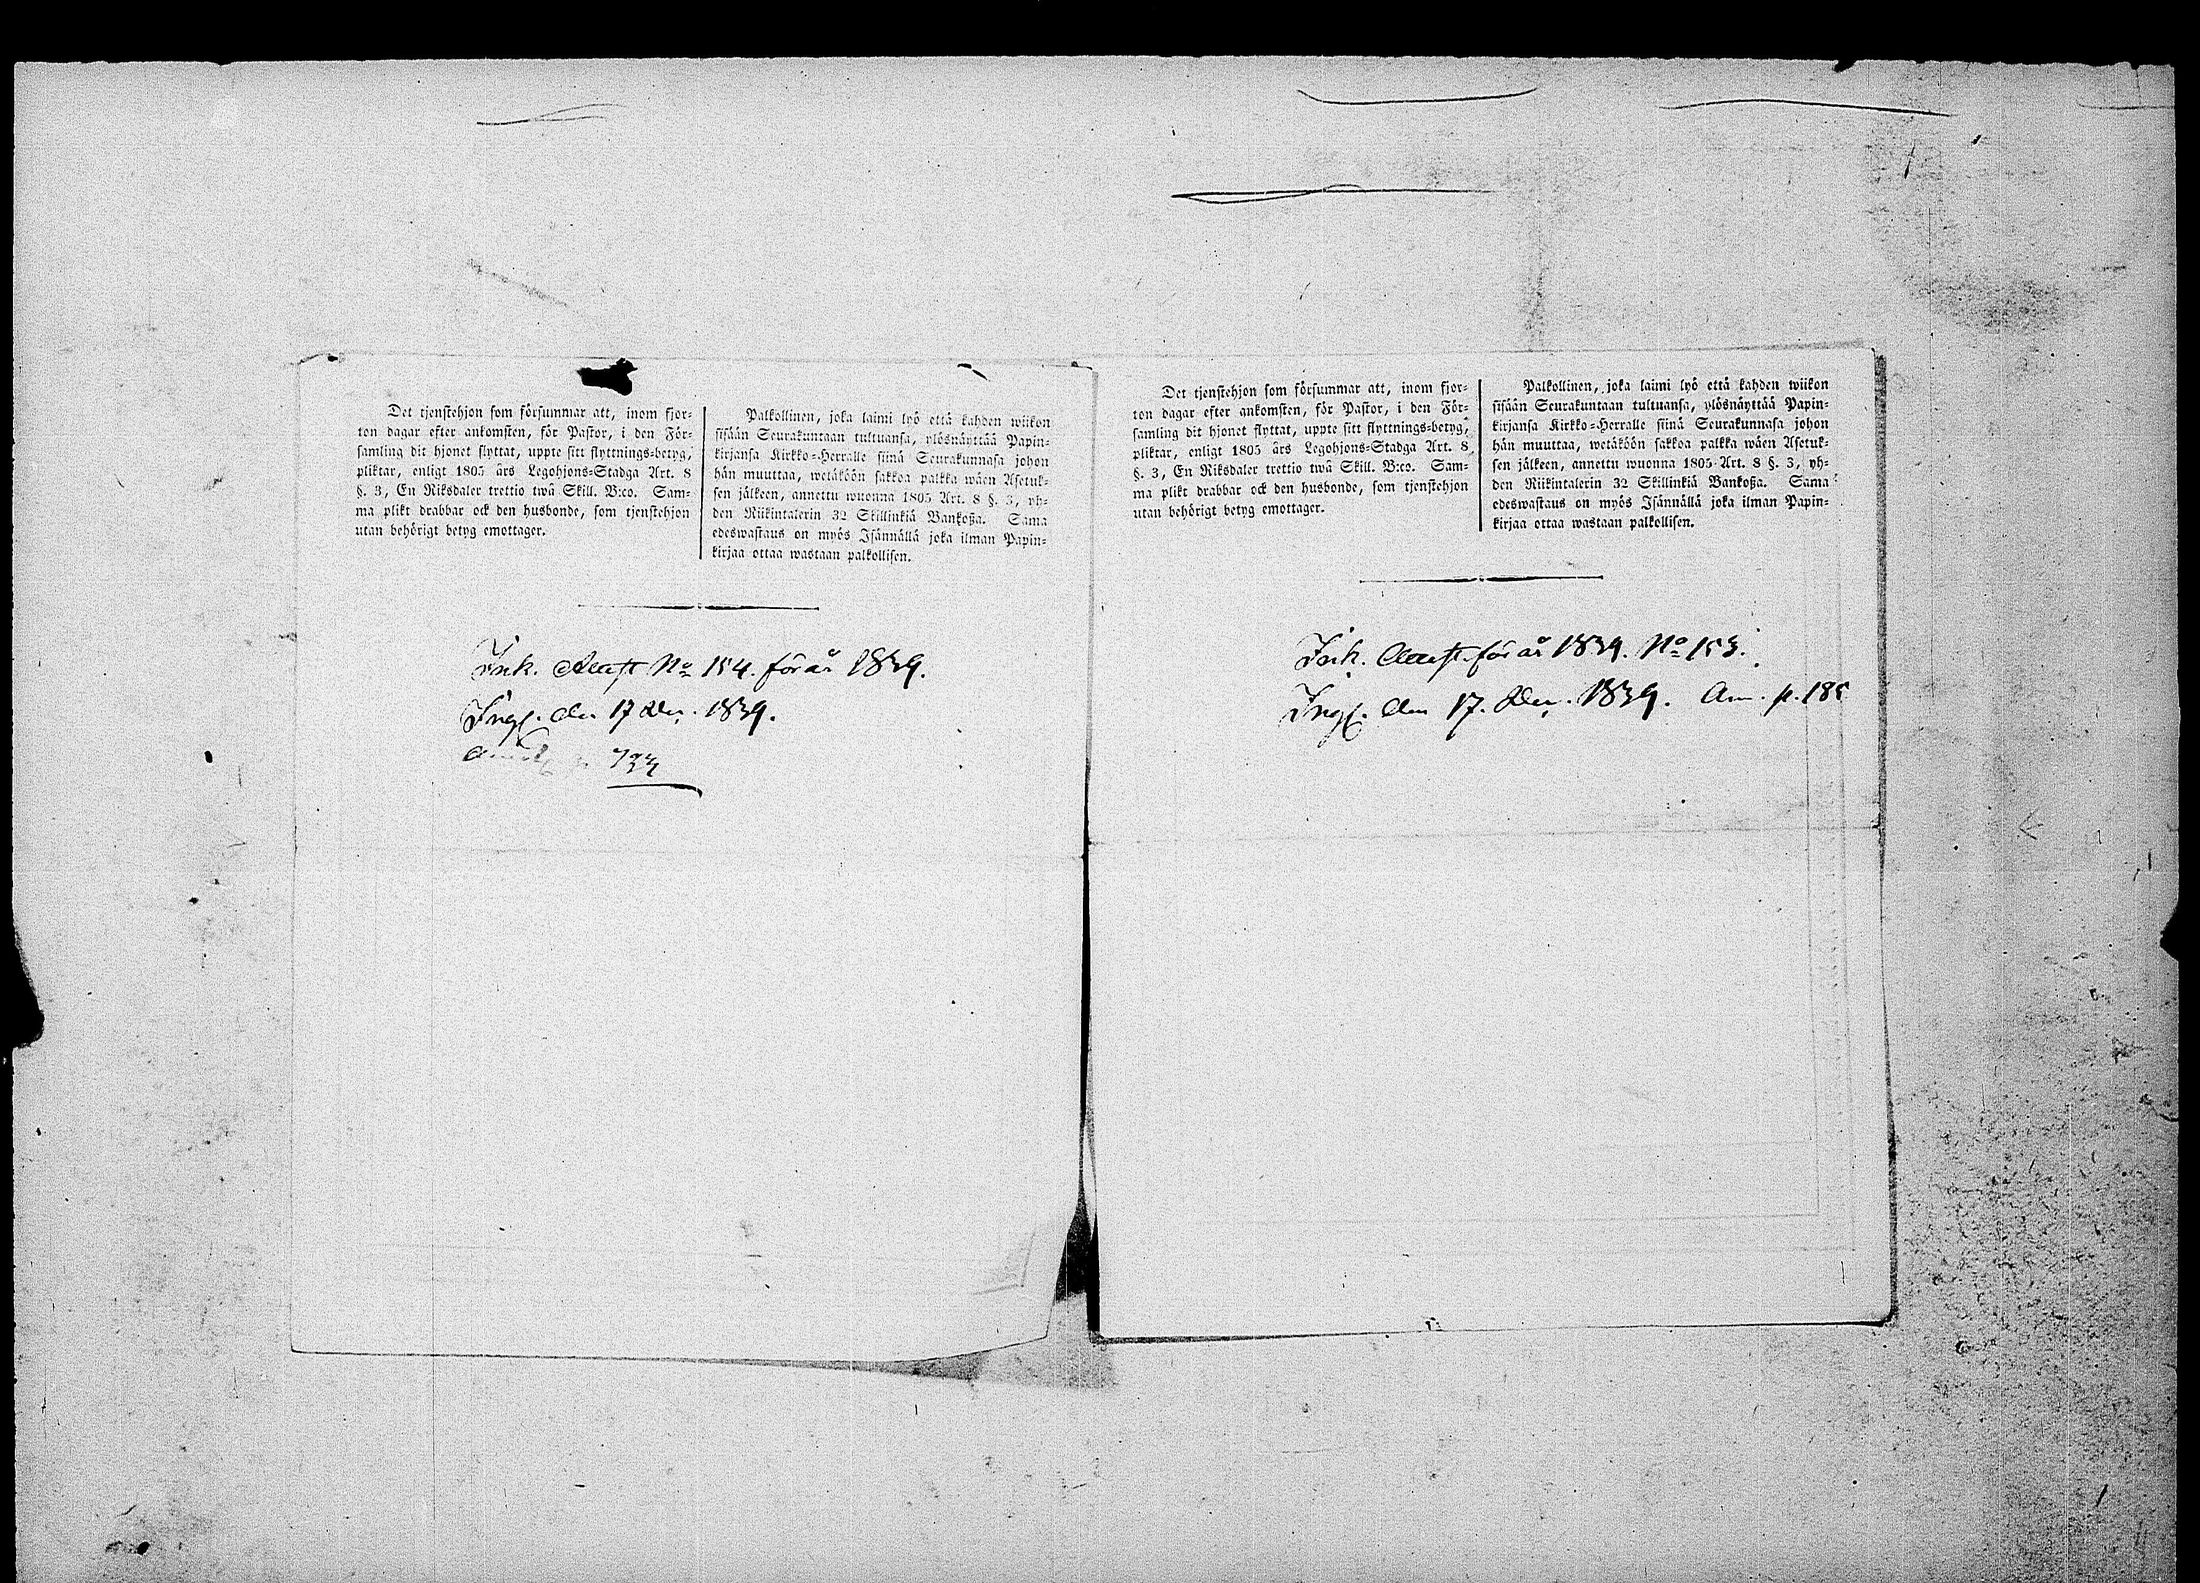 Det tjenstehjon som försummar att, inom fjor-
ton dagar efter ankomsten, för Pastor, i den För-
samling dit hjonet flyttat, uppte sitt flyttnings-betyg,
pliktar, enligt 1805 års Legohjons-Stadga Art. 8
§. 3, En Riksdaler trettio twå Skill. B:co. Sam-
ma plikt drabbar ock den husbonde, som tjenstehjon
utan behörigt betyg emottager.
Palkollinen, joka laimi lyö että kahden wiikon
sisään Seurakuntaan tultuansa, ylösnäyttää Papin-
kirjansa Kirkko-Herralle siinä Seurakunnasa johon
hän muuttaa, wetäköön sakkoa palkka wäen Asetuk-
sen jälkeen, annettu wuonna 1805 Art. 8 §. 3, yh-
den Riikintalerin 32 Skillinkiä Bankoßa. Sama
edeswastaus on myös Isännällä joka ilman Papin-
kirjaa ottaa wastaan palkollisen.
Ink. Attest No 154. för år 1839.
Ingf. den 17 Dec. 1839.
733
Det tjenstehjon som försummar att, inom fjor-
ton dagar efter ankomsten, för Pastor, i den För-
samling dit hjonet flyttat, uppte sitt flyttnings-betyg,
pliktar, enligt 1805 års Legohjons-Stadga Art. 8
§. 3, En Riksdaler trettio twå Skill. B:co. Sam-
ma plikt drabbar ock den husbonde, som tjenstehjon
utan behörigt betyg emottager.
Palkollinen, joka laimi lyö että kahden wiikon
sisään Seurakuntaan tultuansa, ylösnäyttää Papin-
kirjansa Kirkko-Herralle siinä Seurakunnasa johon
hän muuttaa, wetäköön sakkoa palkka wäen Asetuk-
sen jälkeen, annettu wuonna 1805 Art. 8 §. 3, yh-
den Riikintalerin 32 Skillinkiä Bankoßa. Sama
edeswastaus on myös Isännällä joka ilman Papin-
kirjaa ottaa wastaan palkollisen.
Ink. Attest. för år 1839. No 153.
Ingf. den 17. Dec. 1839. Ann. p. 185